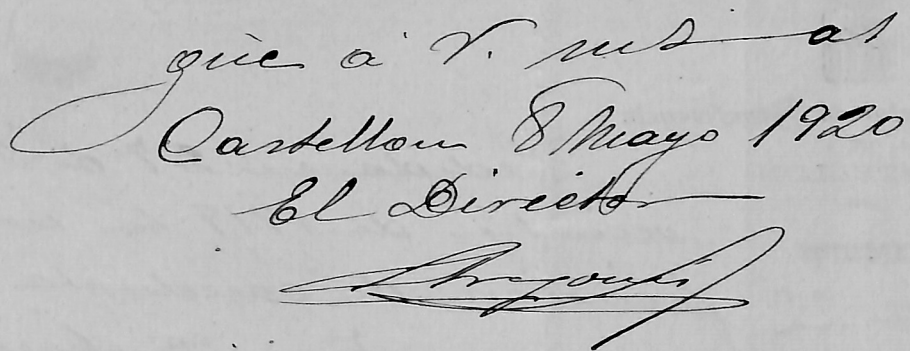 güe á V. ms as
Castellon 8 Mayo 1920
El Director